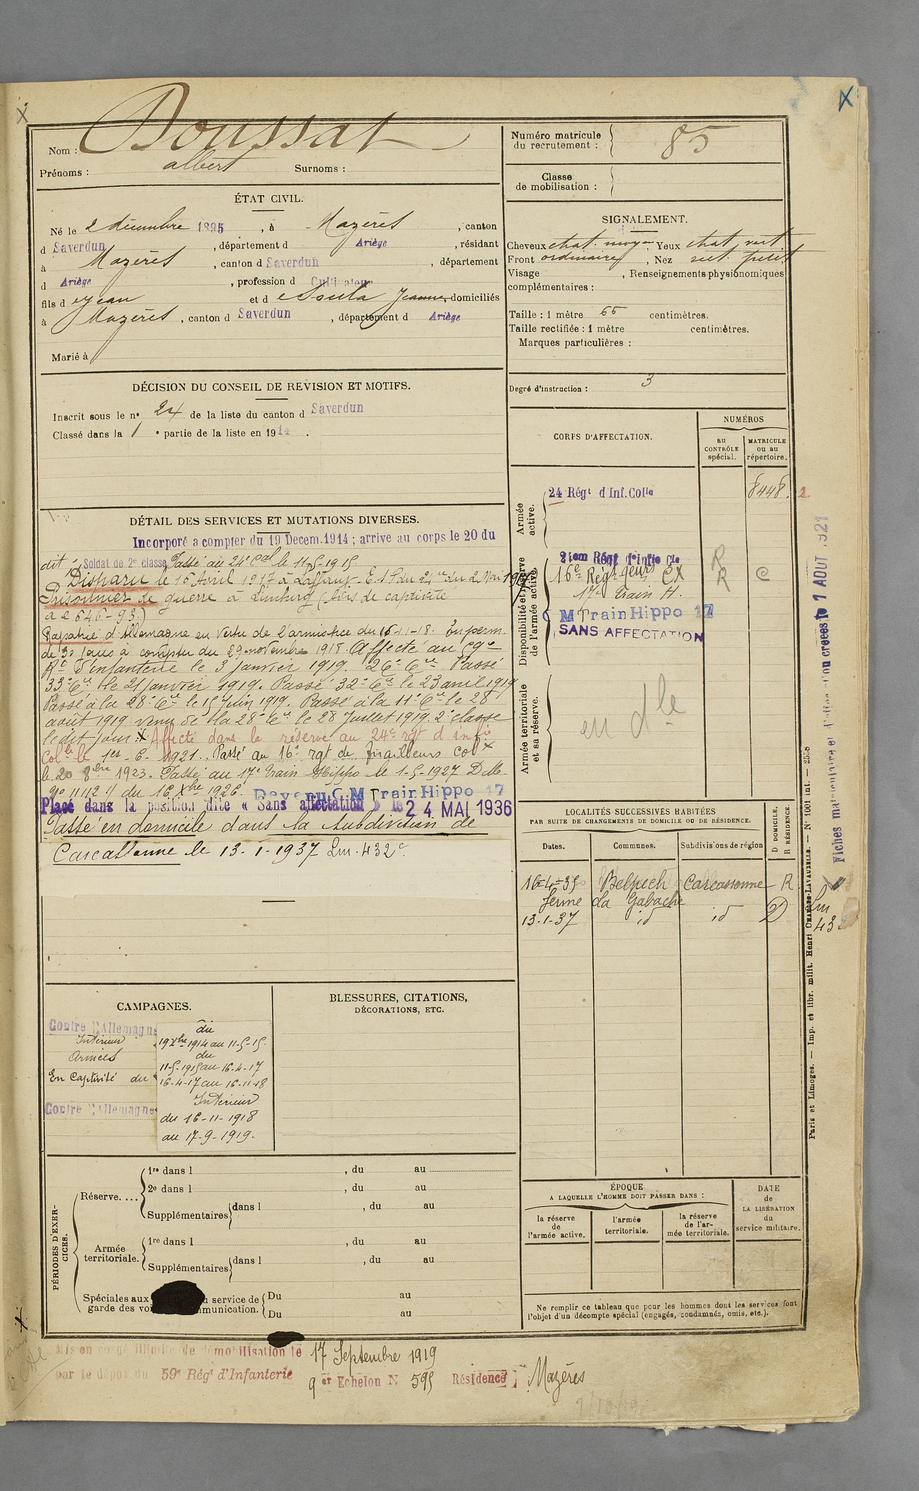 Nom : Doussat
Prénoms : albert Surnoms :
Numéro matricule
du recrutement : 85
Classe
de mobilisation :
ÉTAT CIVIL.
Né le 2 décembre 1895, à Mazères, canton
d Saverdun, département d Ariège, résidant
à Mazères, canton d Saverdun, département
d Ariège, profession d Cultivateur
fils d Jean et d Soula Jeanne, domiciliés
à Mazères, canton d Saverdun, département d Ariège
Marié à
SIGNALEMENT.
Cheveux chat. moyen, Yeux chat. vert
Front ordinaire, Nez rect. petit
Visage , Renseignements physionomiques
complémentaires :
Taille : 1 mètre 66 centimètres.
Taille rectifiée : 1 mètre centimètres.
Marques particulières :
Degré d'instruction : 3
DÉCISION DU CONSEIL DE REVISION ET MOTIFS.
Inscrit sous le n° 24 de la liste du canton d Saverdun
Classé dans la 1e partie de la liste en 1914.
CORPS D'AFFECTATION.
NUMÉROS
au
CONTRÔLE
spécial.
MATRICULE
ou au
répertoire.
Armée
active.
24 Régt d'Inf. Colle
8448. 2
Disponibilité et réserve
de l'armée active.
16e Rég. X
R
R
17e Train H.
M Train Hippo 17
SANS AFFECTATION
Armée territoriale
et sa réserve.
en dle
DÉTAIL DES SERVICES ET MUTATIONS DIVERSES.
Incorporé à compter du 19 Decem. 1914 ; arrivé au corps le 20 du
dit, Soldat de 2e classe, Passé au 24e Cal le 11-5-1915
Disparu le 16 Avril 1917 à Laffaux
Prisonnier de guerre à Limburg
Rapatrié d'Allemagne en vertu de l'armistice du 16-11-18. En perm.
de 30 jours à compter du 29 novembre 1918. Affecté au 59e
Rt d'infanterie le 3 janvier 1919. 26e Cie. Passé
33e Cie le 21 janvier 1919. Passé 32e Cie le 23 avril 1919
Passé à la 28e Cie le 15 Juin 1919. Passé à la 11e Cie le 28
août 1919 venu de la 28e Cie le 28 Juillet 1919. 2e classe
le dit jour. X Affecté dans la réserve au 24e rgt d'infie
Colle le 1er-6-1921. Passé au 16e rgt de tirailleurs colx
le 20 8bre 1923. Passé au 17e Train Hippo le 1-5-1927 D M
du 16 Xbre 1926. C M Train Hippo 17
Placé dans la position dite « Sans affectation » le 24 MAI 1936
Passé en domicile dans la subdivision de
Carcassonne le 13-1-1937 Lm. 432c.
LOCALITÉS SUCCESSIVES HABITÉES
PAR SUITE DE CHANGEMENTS DE DOMICILE OU DE RÉSIDENCE.
Dates. Communes. Subdivisions de région
D DOMICILE,
R RÉSIDENCE.
16-4-35 Belpech Carcassonne R
ferme la Gabache
13-1-37 id id D
CAMPAGNES.
Contre l'Allemagne du
Intérieur 19 Xbre 1914 au 11-5-15
Armées du
11-5-1915 au 16-4-17
En Captivité du 16-4-17 au 16-11-18
Contre l'Allemagne Intérieur
du 16-11-1918
au 17-9-1919.
BLESSURES, CITATIONS,
DÉCORATIONS, ETC.
PÉRIODES D'EXER-
CICES.
Réserve....
1re dans l , du au
2e dans l , du au
Supplémentaires dans l , du au
Armée
territoriale.
1re dans l , du au
Supplémentaires dans l , du au
Spéciales aux service de
garde des voies communication.
Du au
Du au
ÉPOQUE
A LAQUELLE L'HOMME DOIT PASSER DANS :
la réserve
de
l'armée active.
l'armée
territoriale.
la réserve
de l'ar-
mée territoriale.
DATE
de
LA LIBÉRATION
du
service militaire.
Ne remplir ce tableau que pour les hommes dont les services font
l'objet d'un décompte spécial (engagés, condamnés, omis, etc.).
Mis en congé illimité de démobilisation le 17 Septembre 1919
par le dépôt du 59e Régt d'Infanterie
9er Echelon N° 595 Résidence : Mazères
Fiches matriculaire et d'affectation créées le 1 AOUT 1921
Paris et Limoges. — Imp. et libr. milit. Henri CHARLES-LAVAUZELLE.